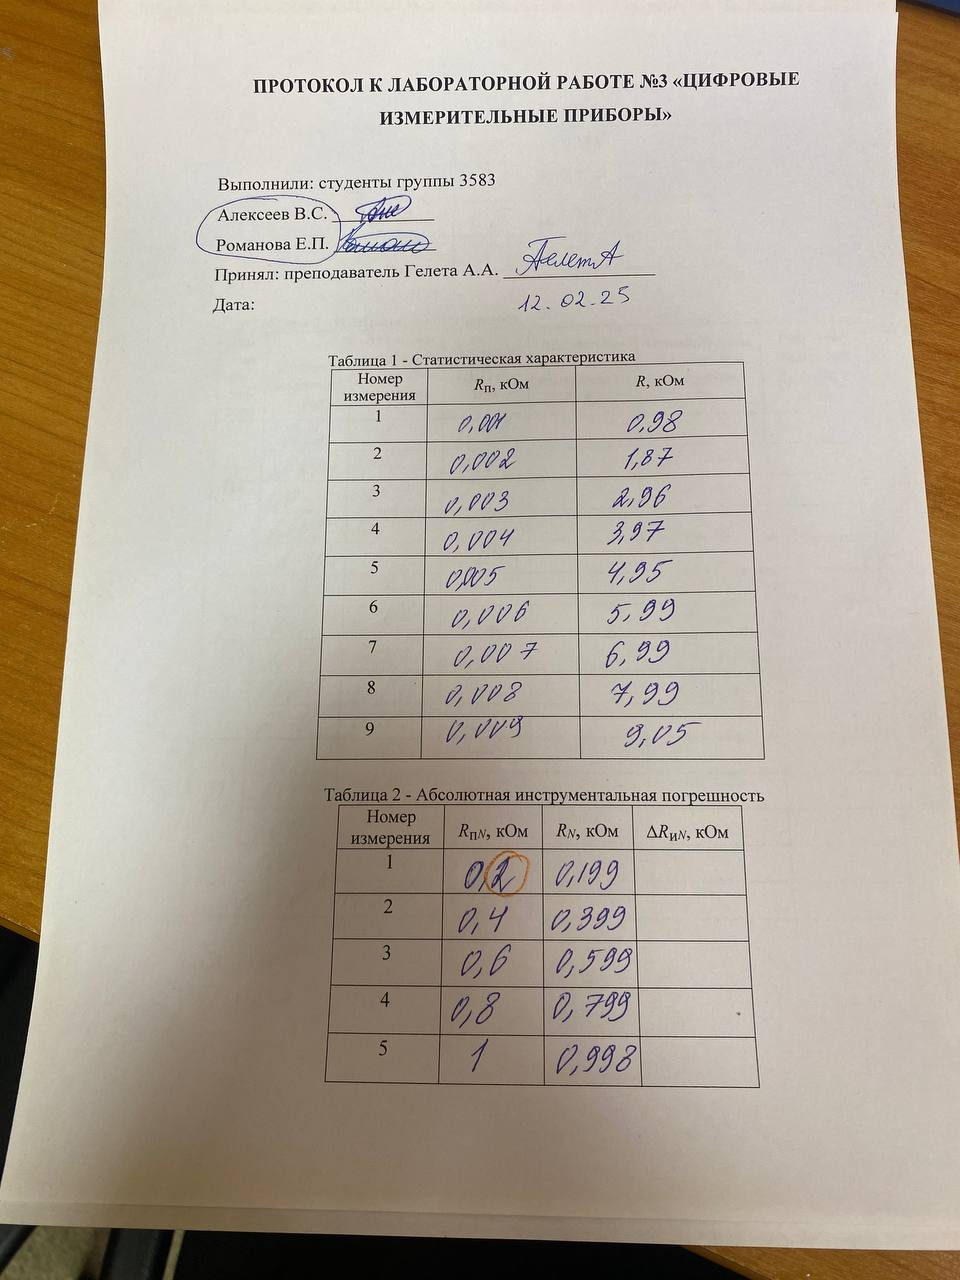 ПРОТОКОЛ К ЛАБОРАТОРНОЙ РАБОТЕ №3 «ЦИФРОВЫЕ
ИЗМЕРИТЕЛЬНЫЕ ПРИБОРЫ»
Выполнили: студенты группы 3583
Алексеев В.С.
Романова Е.П.
Принял: преподаватель Гелета А.А.
Дата: 12.02.25
Таблица 1 - Статистическая характеристика
Номер измерения Rп, кОм R, кОм
1 0,001 0,98
2 0,002 1,87
3 0,003 2,96
4 0,004 3,97
5 0,005 4,95
6 0,006 5,99
7 0,007 6,99
8 0,008 7,99
9 0,009 9,05
Таблица 2 - Абсолютная инструментальная погрешность
Номер измерения RпN, кОм RN, кОм ΔRиN, кОм
1 0,2 0,199
2 0,4 0,399
3 0,6 0,599
4 0,8 0,799
5 1 0,998